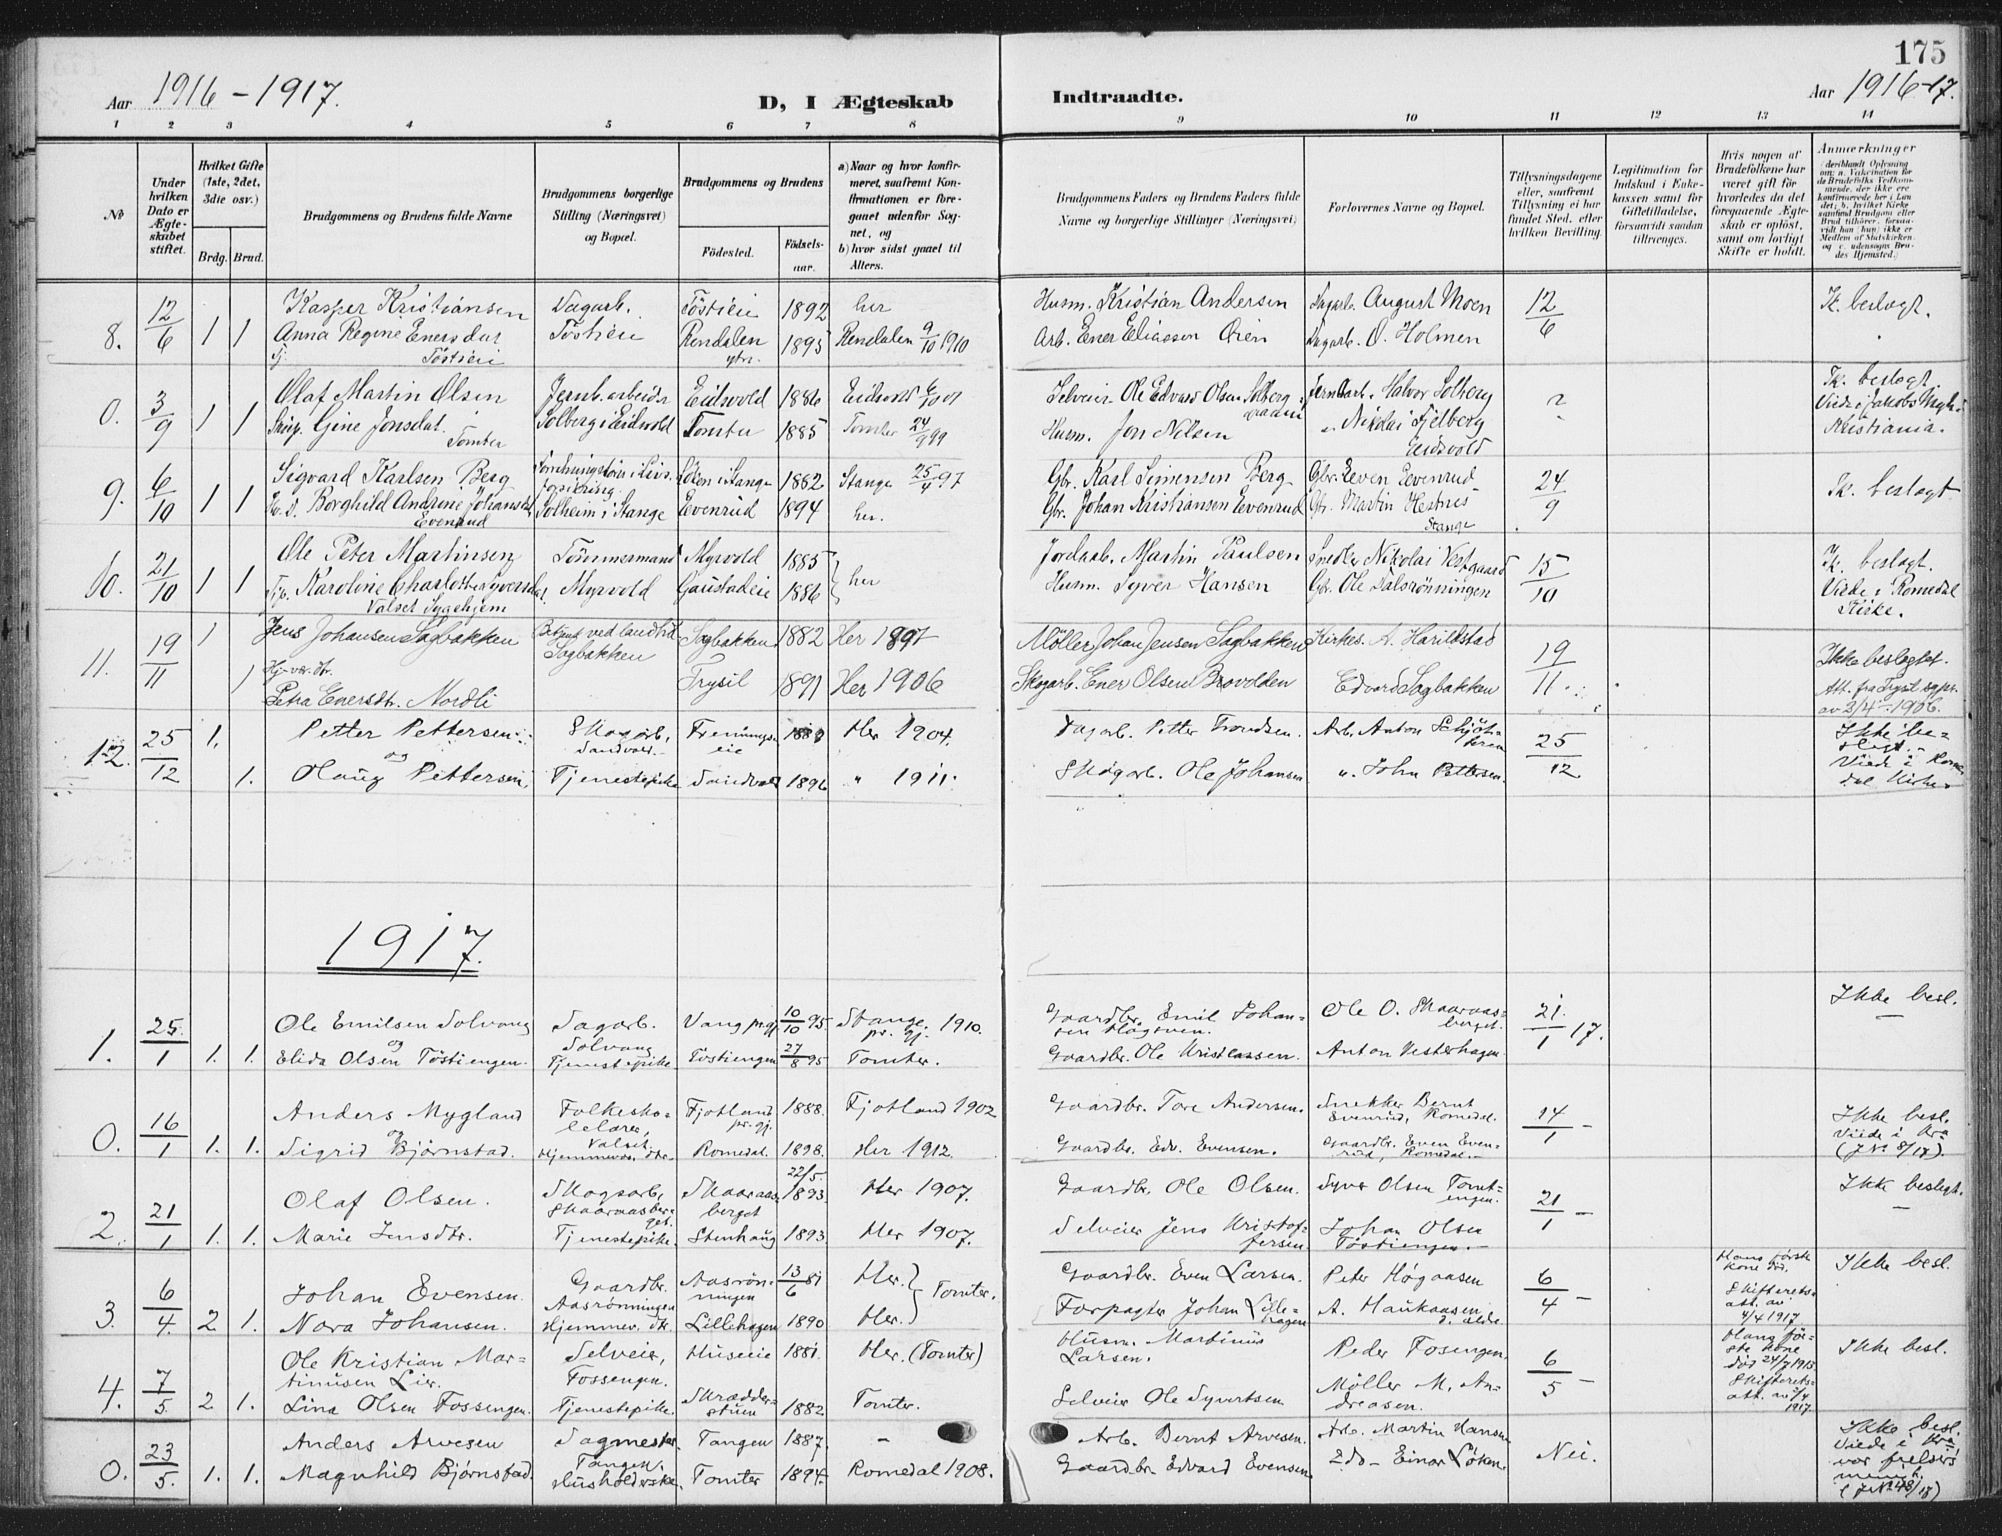 175
Aar 1916 - 1917.
D, I Ægteskab Indtraadte.
Aar 1916-17.
1 2 3 4 5 6 7 8 9 10 11 12 13 14
№
Under hvilken Dato er Ægteskabet stiftet.
Hvilket Gifte (1ste, 2det, 3die osv.)
Brdg. Brud.
Brudgommens og Brudens fulde Navne
Brudgommens borgerlige Stilling (Næringsvei) og Bopæl.
Brudgommens og Brudens
Födested. Födsels-aar.
a) Naar og hvor konfirmeret, saafremt Konfirmationen er foregaaet udenfor Sognet, og
b) hvor sidst gaaet til Alters.
Brudgommens Faders og Brudens Faders fulde Navne og borgerlige Stillinger (Næringsvei)
Forlovernes Navne og Bopæl.
Tillysningsdagene eller, saafremt Tillysning ei har fundet Sted, efter hvilken Bevilling.
Legitimation for Indskud i Enkekassen samt for Giftetilladelse, forsaavidt saadan tiltrænges.
Hvis nogen af Brudefolkene har været gift för hvorledes da det foregaaende Ægteskab er oplöst, samt om lovligt Skifte er holdt.
Anmærkninger
8. 12/6 1 1 Kasper Kristiansen Dagarb. Töstieie 1892 her Husm. Kristian Andersen Dagarb. August Moen 12/6 Ik. beslægt.
Anna Regine Enersdtr Töstieie Rendalen ytre. 1895 Rendalen 9/10 1910 Arb. Ener Eliassen Öien Dagarb. O. Holmen
Töstieie
0. 3/9 1 1 Olaf Martin Olsen Jernb.arbeider Eidsvold 1886 Eidsvold Selveier Ole Edvard Olsen Solberg Jernbarb. Halvor Solberg ? Ik. beslægt.
Gine Jonsdat. Solberg i Eidsvold Tomter 1885 Tomter 24/9 99 Husm. Jon Nilsen " Nikolai Fjelberg
Tomter Eidsvold Kristiania.
9. 6/10 1 1 Sigvard Karlsen Berg i Stange 1882 Stange 25/4 97 Gbr. Karl Simensen Berg Gbr. Even Evenrud 24/9 Ik. beslægt
Borghild Andrine Johansdt. Solheim i Stange Evenrud 1894 her. Gbr. Johan Kristiansen Evenrud Gbr. Martin Hestnes
Evenrud Stange
10. 21/10 1 1 Ole Peter Martinsen Tömmermand Myrvold 1885 her Jordarb. Martin Paulsen Snedker Nikolai Vestgaard 15/10 Ik. beslægt.
Karoline Charlotte Syversdat. Myrvold Gaustadeie 1886 Husm. Syver Hansen Gbr. Ole Dalsrönningen Viede i Romedal
Valset Sygehjem Kirke.
11. 19/11 1 Jens Johansen Sagbakken Sagbakken Sagbakken 1882 Her 1897 Möller Johan Jensen Sagbakken Kirkes. A. Harildstad 19/11 Ikke beslegtet.
1 Hj-vær. dtr. Petra Enersdtr. Nordli Trysil 1891 Her 1906 Skogarb. Ener Olsen Brovolden Edvard Sagbakken Att. fra Trysil
1906.
12. 25/12 1. Petter Pettersen Skogarb. Her 1904. Dagarb. Petter Trondsen Arb. Anton 25/12 Ikke be-slegt.
og Sandvold
1. Olaug Pettersen Tjenestepike Sandvold 1896 " 1911. Skogarb. Ole Johansen " John Pettersen. Viede i Rome-dal Kirke.
1917.
1. 25/1 1. 1. Ole Emilsen Solvang Sagarb. Solvang Vang pr.gj. 10/10 95 Stange pr. gj. 1910. Gaardbr. Emil Johan-sen Ole O. Skaaraas-berget. 21/1 17. Ikke besl.
og
Elida Olsen Töstiengen. Tjenestepike. Töstiengen 27/8 95 Tomter. Gaardbr. Ole Kristiansen. Anton Vesterhagen
0. 16/1 1. 1. Anders Mygland Folkesko-lelærer, Valset Fjotland pr. gj. 1888. Fjotland 1902 Gaardbr. Tore Andersen. Snekker Bernt Evenrud, Romedal. 14/1 - Ikke besl.
og
Sigrid Björnstad. Hjemmevær. dtr. Romedal. 1898. Her 1912. Gaardbr. Edv. Evensen. Gaardbr. Even Even-rud, Romedal. Viede i
2. 21/1 1. 1. Olaf Olsen. Skogsarb. Skaaraasber-get. Skaaraas-berget 22/5 1893 Her 1907. Gaardbr. Ole Olsen. Syver Olsen Tomt-engen. 21/1 - Ikke beslegt.
Marie Jensdtr. Tjenestepike. Stenhaug 1893 Her 1907. Selveier Jens Kristof-fersen. Johan Olsen Töstiengen.
3. 6/4 2 1. Johan Evensen. Gaardbr. Aasrönningen Aasrön-ningen 13/6 81 Her. Tomter. Gaardbr. Even Larsen. Peter Högaasen 6/4 - Hans förste kone död. Skifterets-att. av 4/4 1917 Ikke besl.
Nora Johansen. Hjemmev. dtr. Lillehagen 1890 Her. Forpagter Johan Lille-hagen A. Haukaasen
4. 7/5 2 1. Ole Kristian Mar-tinusen Lier. Selveier, Fossengen. Huseeie 1881. Her. (Tomter) Husm. Martinius Larsen. Peder Fosengen. 6/5 - Hans för-ste kone död 24/9 1915 Skifterets-att. av 1917. Ikke besl.
Lina Olsen Fossengen. Tjenestepike. Skrædder-stuen 1882 Tomter. Selveier Ole Syvertsen Möller M. An-dreasen.
0. 23/5. 1. 1. Anders Arvesen Sagmester. Tangen. Tangen 1887. - Arb. Bernt Arvesen. Arb. Martin Hansen Nei. Ikke besl.
Magnhild Björnstad. Husholderske. Tomter 1894. Romedal 1908. Gaardbr. Edvard Evensen Do - Einar Löken. Viede i